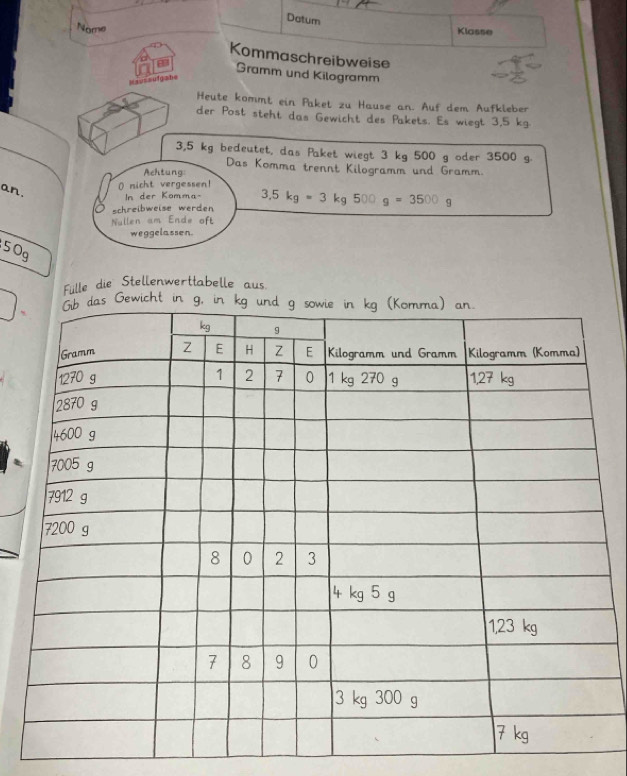 Name
Datum
Klasse
Hausaufgabe
Kommaschreibweise
Gramm und Kilogramm
Heute kommt ein Paket zu Hause an. Auf dem Aufkleber
der Post steht das Gewicht des Pakets. Es wiegt 3,5 kg.
3,5 kg bedeutet, das Paket wiegt 3 kg 500 g oder 3500 g.
Das Komma trennt Kilogramm und Gramm.
3,5 kg = 3 kg 500 g = 3500 g
Achtung:
0 nicht vergessen!
In der Komma-
schreibweise werden
Nullen am Ende oft
weggelassen.
an.
50g
Fülle die Stellenwerttabelle aus.
Gib das Gewicht in g, in kg und g sowie in kg (Komma) an.
kg g
Gramm Z E H Z E Kilogramm und Gramm Kilogramm (Komma)
1270 g 1 2 7 0 1 kg 270 g 1,27 kg
2870 g
4600 g
7005 g
7912 g
7200 g
8 0 2 3
4 kg 5 g
1,23 kg
7 8 9 0
3 kg 300 g
7 kg